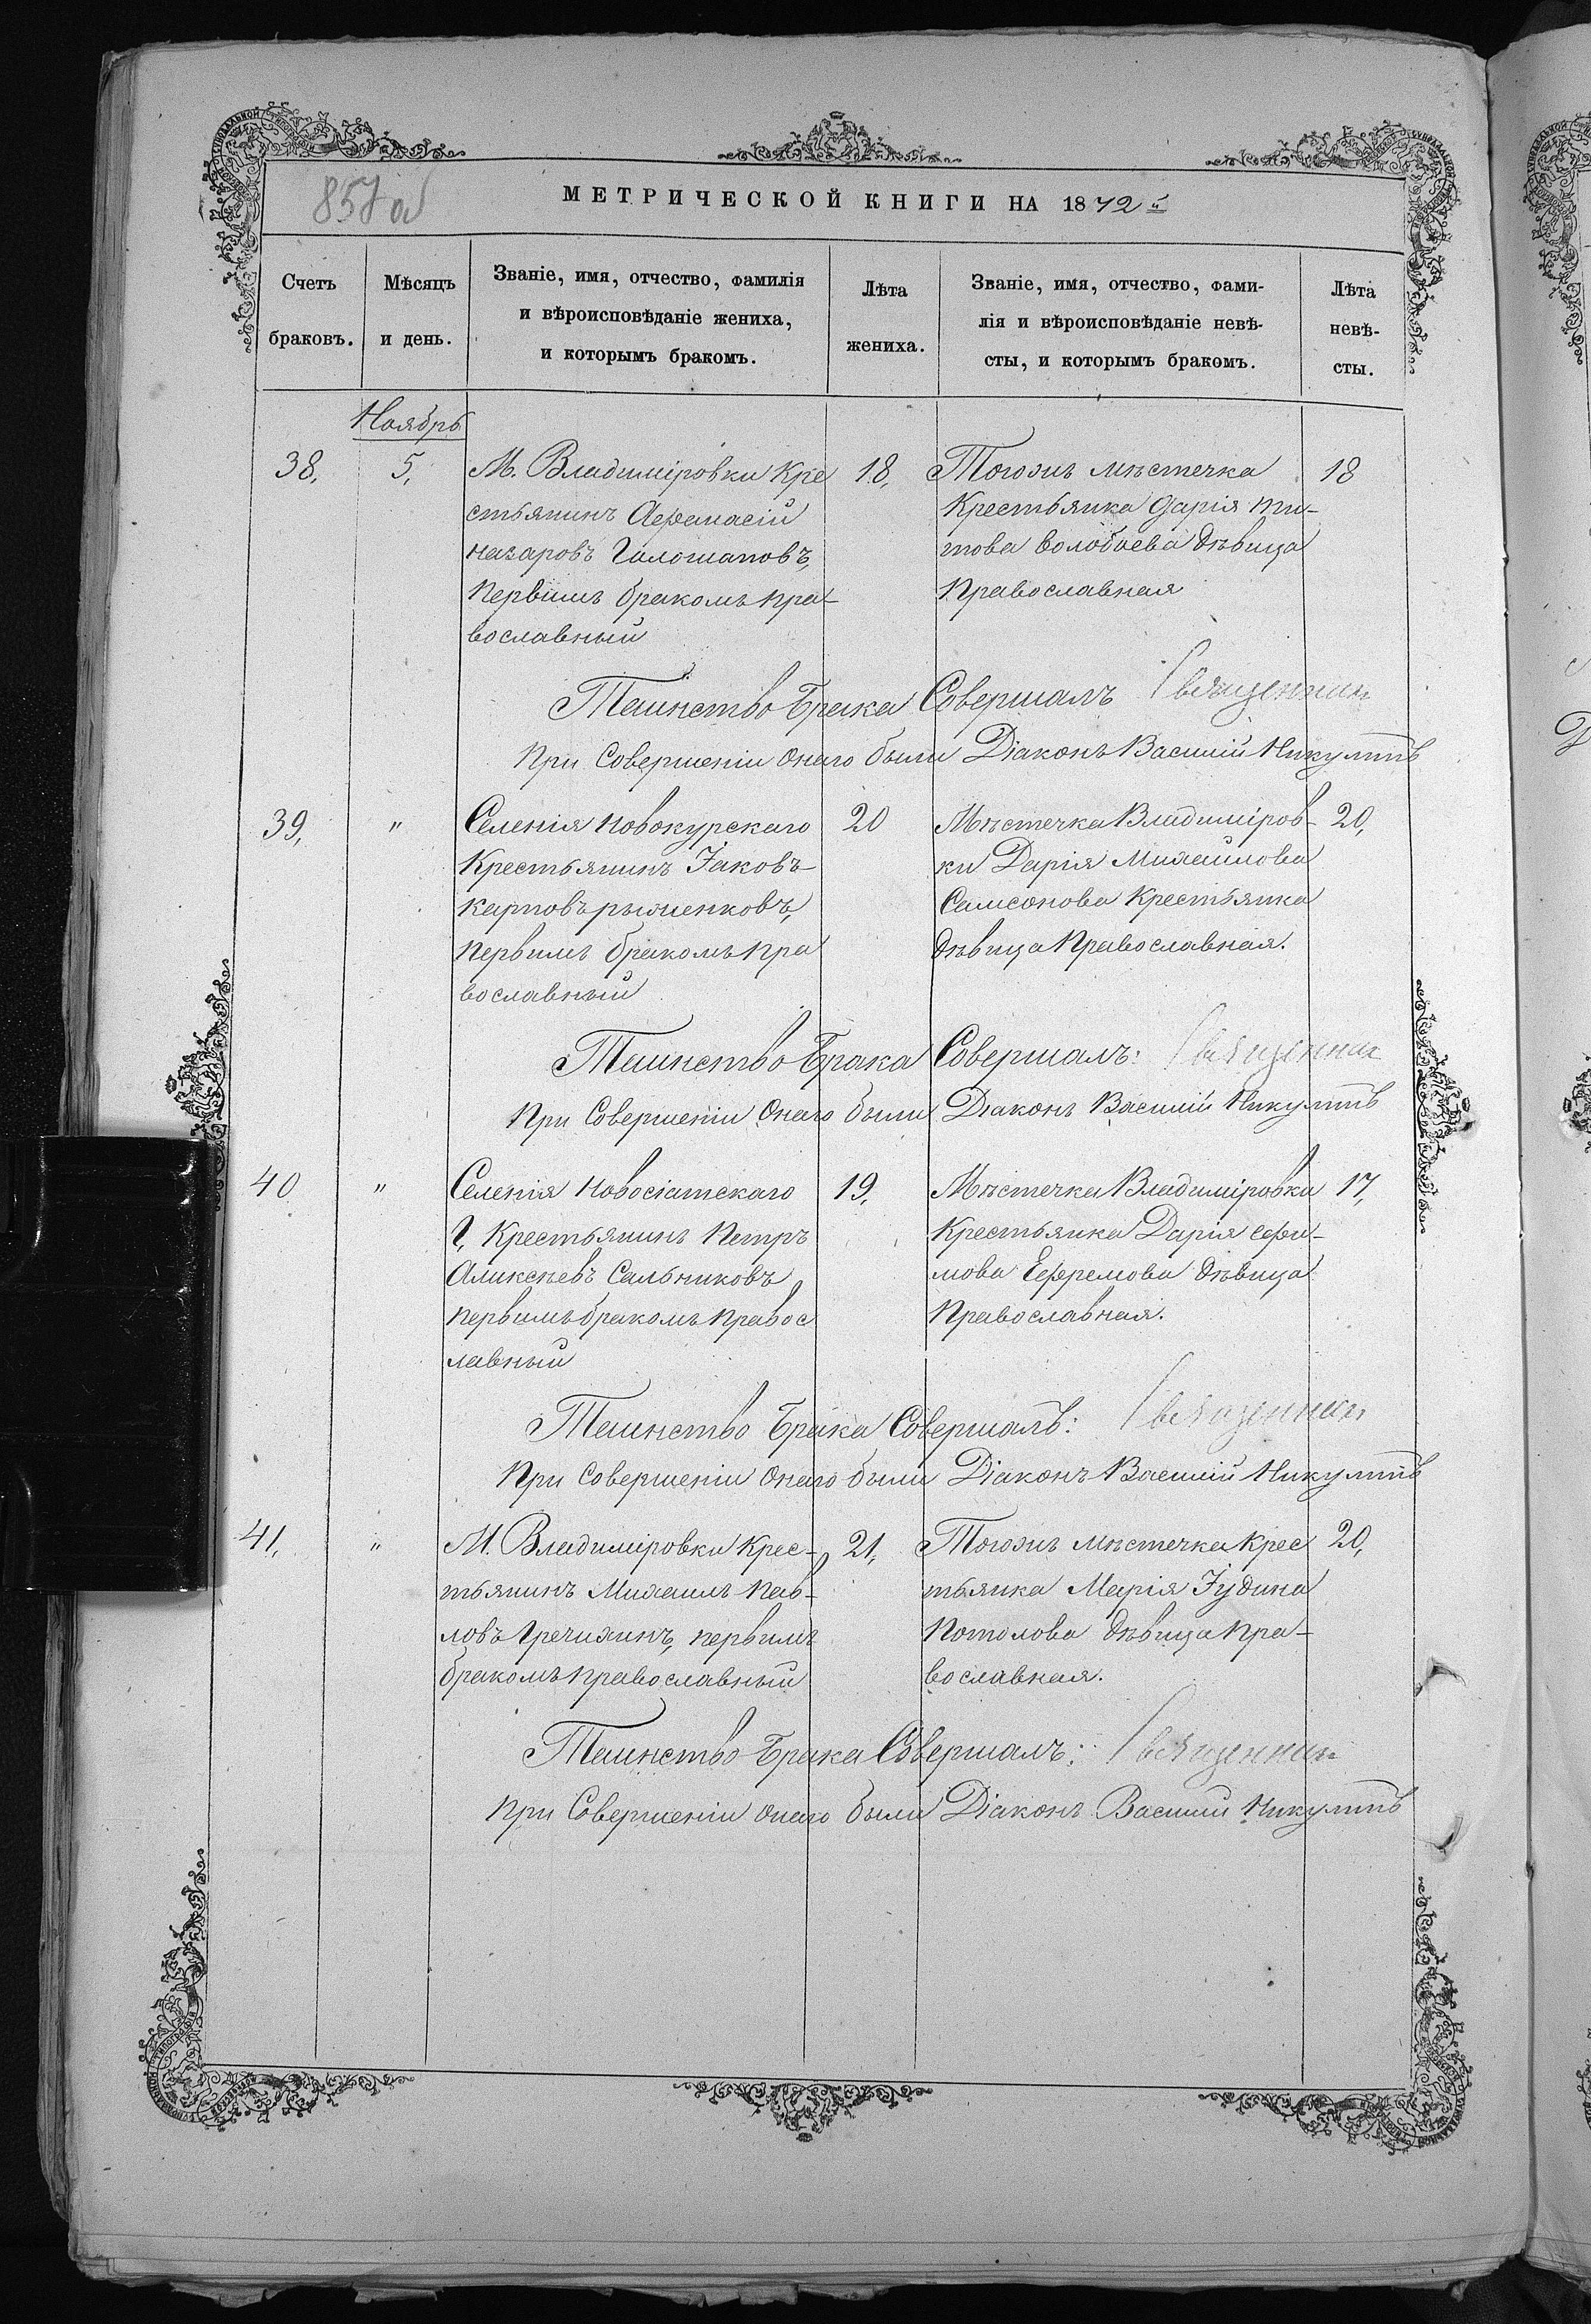 857 об
МЕТРИЧЕСКОЙ КНИГИ НА 1872 й
Счетъ браковъ.
Мѣсяцъ и день.
Званіе, имя, отчество, фамилія
и вѣроисповѣданіе жениха,
и которымъ бракомъ.
Лѣта жениха.
Званіе, имя, отчество, фами-
лія и вѣроисповѣданіе невѣ-
сты, и которымъ бракомъ.
Лѣта невѣ-
сты.
Ноябрь
38, 5,
М. Владиміровки Кре
стьянинъ Аѳанасій
Назаровъ Галошаповъ,
Первымъ бракомъ пра-
вославный
18,
Тогожъ мѣстечка
Крестьянка Дарія Ти-
това Волобаева дѣвица
Православная
18
Таинство Брака Совершалъ Священник
При Совершеніи Онаго были Діаконъ Василій
39, "
Селенія Новокурскаго
Крестьянинъ Іаковъ
Карповъ рыженковъ,
Первымъ бракомъ пра
вославный
20
Мѣстечка Владиміров-
ки Дарія Михайлова
Самсонова Крестьянка
дѣвица Православная.
20,
Таинство Брака Совершалъ: Священник
При Совершеніи Онаго были Діаконъ Василій
40 "
Селенія
Крестьянинъ Петръ
Аликсѣевъ Сальниковъ
первымъ бракомъ Правос
лавный
19,
Мѣстечка Владиміровки
Крестьянка Дарія Ефи-
мова Ефремова дѣвица
Православная.
17,
Таинство Брака Совершалъ: Священник
При Совершеніи Онаго были Діаконъ Василій
41, "
М. Владиміровки Крес-
тьянинъ Михаилъ Пав-
ловъ Гречихинъ, первымъ
бракомъ православный
21,
Тогожъ мѣстечка Крес
тьянка Марія Іудина
Потолова дѣвица Пра-
вославная.
20,
Таинство Брака Совершалъ: Священник
При Совершеніи Онаго были Діаконъ Василій